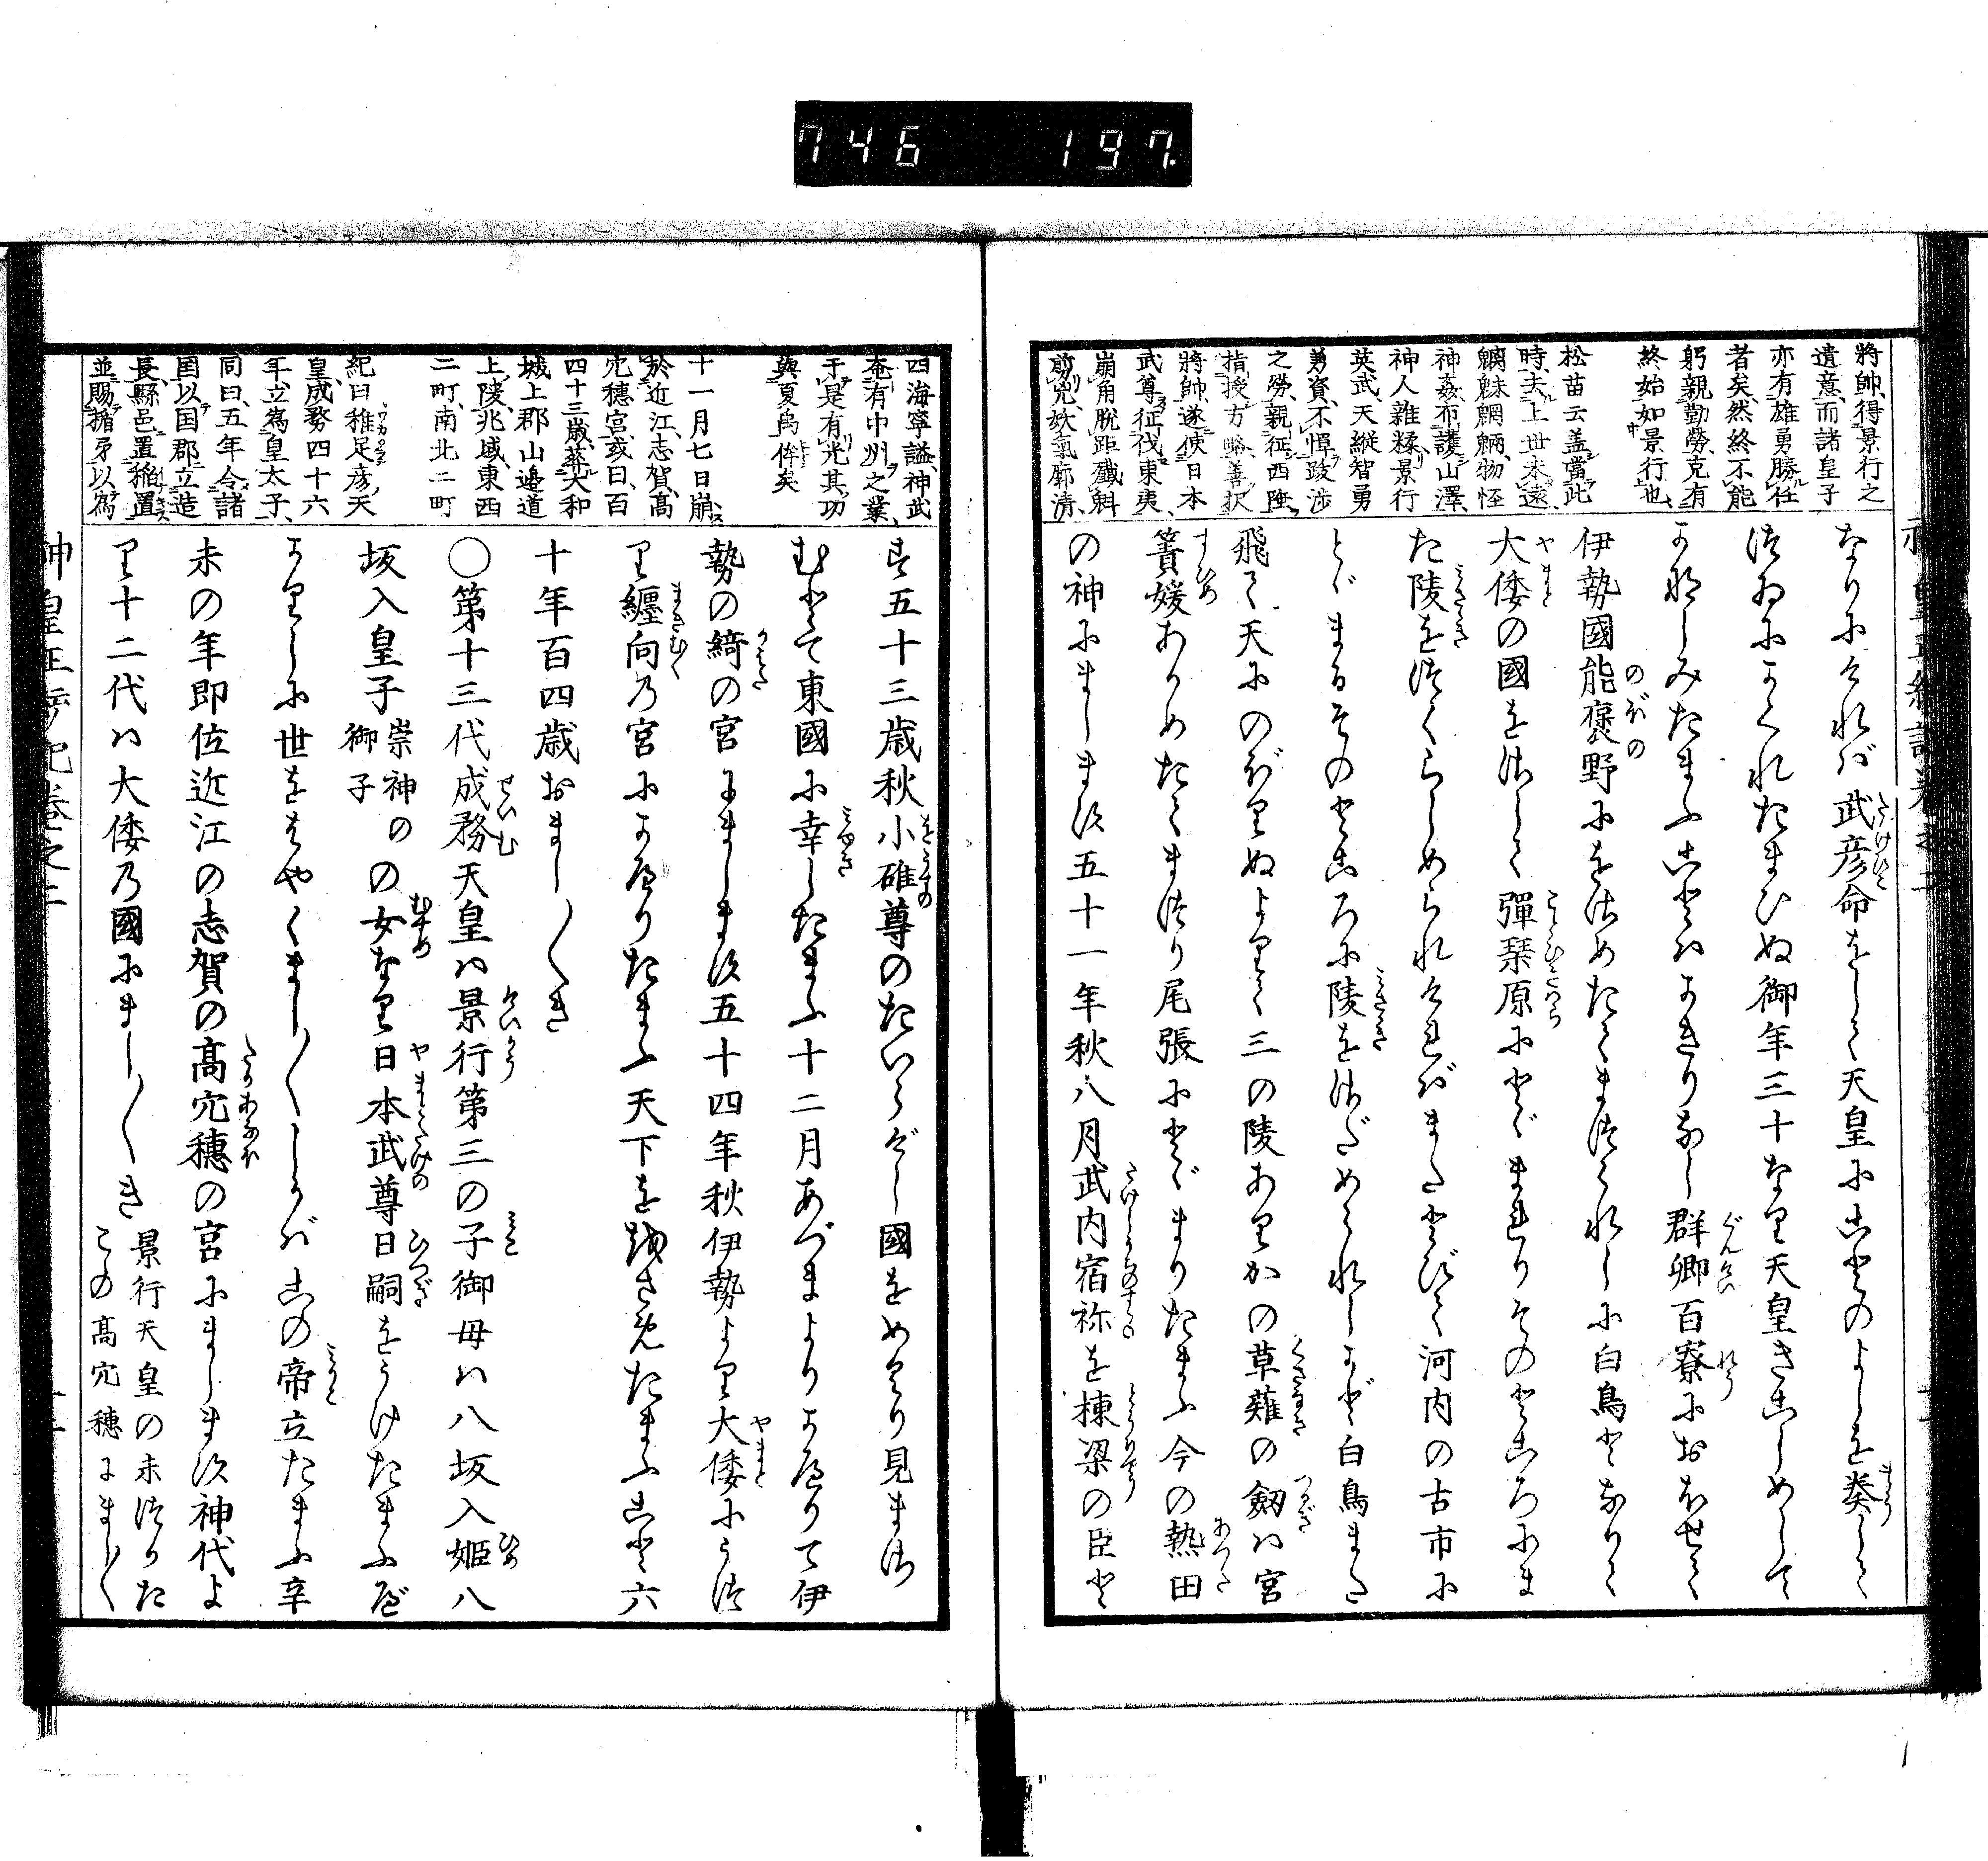 746 197
將帥得景行之
遺意而諸皇子
亦有雄勇勝任
者矣然終不能
躬親勤勞克有
終始如景行也
松苗云盖當此
時夫上世未遠
魑魅魍魎物怪
神姦布護山澤
神人雜糅景行
英武天縦智勇
勇資不憚跋渉
之勞親征西陲
指授方畧善択
將帥遂使日本
武尊征伐東夷
崩角脱距殲斛
剪兇妖氣廓清
なりにけれバ武彦命をして天皇にことのよしを奏して
つゐにかくれたまひぬ御年三十なり天皇きこしめして
かなしみたまふことハかきりなし群卿百寮におほせて
伊勢國能褒野にをさめたてまつられしに白鳥となりて
大倭の國をさして彈琹原にとゞまれりそのところにま
た陵をつくらしめられけれバまたとびて河内の古市に
とゞまるそのところに陵をさだめられしかど白鳥また
飛て天にのぼりぬよりて三の陵ありかの草薙の劔ハ宮
簀媛あがめたてまつり尾張にとゞまりたまふ今の熱田
の神にまします五十一年秋八月武内宿祢を棟梁の臣と
四海寧謐神武
奄有中州之業
于是有光其功
與夏禹侔矣
十一月七日崩
於近江志賀髙
穴穗宮或曰百
四十三歳葬大和
城上郡山邉道
上陵兆域東西
二町南北二町
紀曰稚足彦天
皇成務四十六
年立爲皇太子
同曰五年令諸
国以国郡立造
長縣邑置稲置
並賜楯矛以爲
す五十三歳秋小碓尊のたいらげし國をめぐり見まさ
むとて東國に幸したまふ十二月あづまよりかへりて伊
勢の綺の宮にまします五十四年秋伊勢より大倭にうつ
り纏向の宮にかへりたまふ天下を治させたまふこと六
十年百四歳おまし〱き
〇第十三代成務天皇ハ景行第三の子御母ハ八坂入姫八
坂入皇子崇神の御子の女なり日本武尊日嗣をうけたまふべ
かりしに世をはやくまし〱しかバこの帝立たまふ辛
未の年即位近江の志賀の髙穴穗の宮にまします神代よ
り十二代ハ大倭の國にまし〱き景行天皇の末つかたこの髙穴穗にまし〱
神皇正統記巻之二